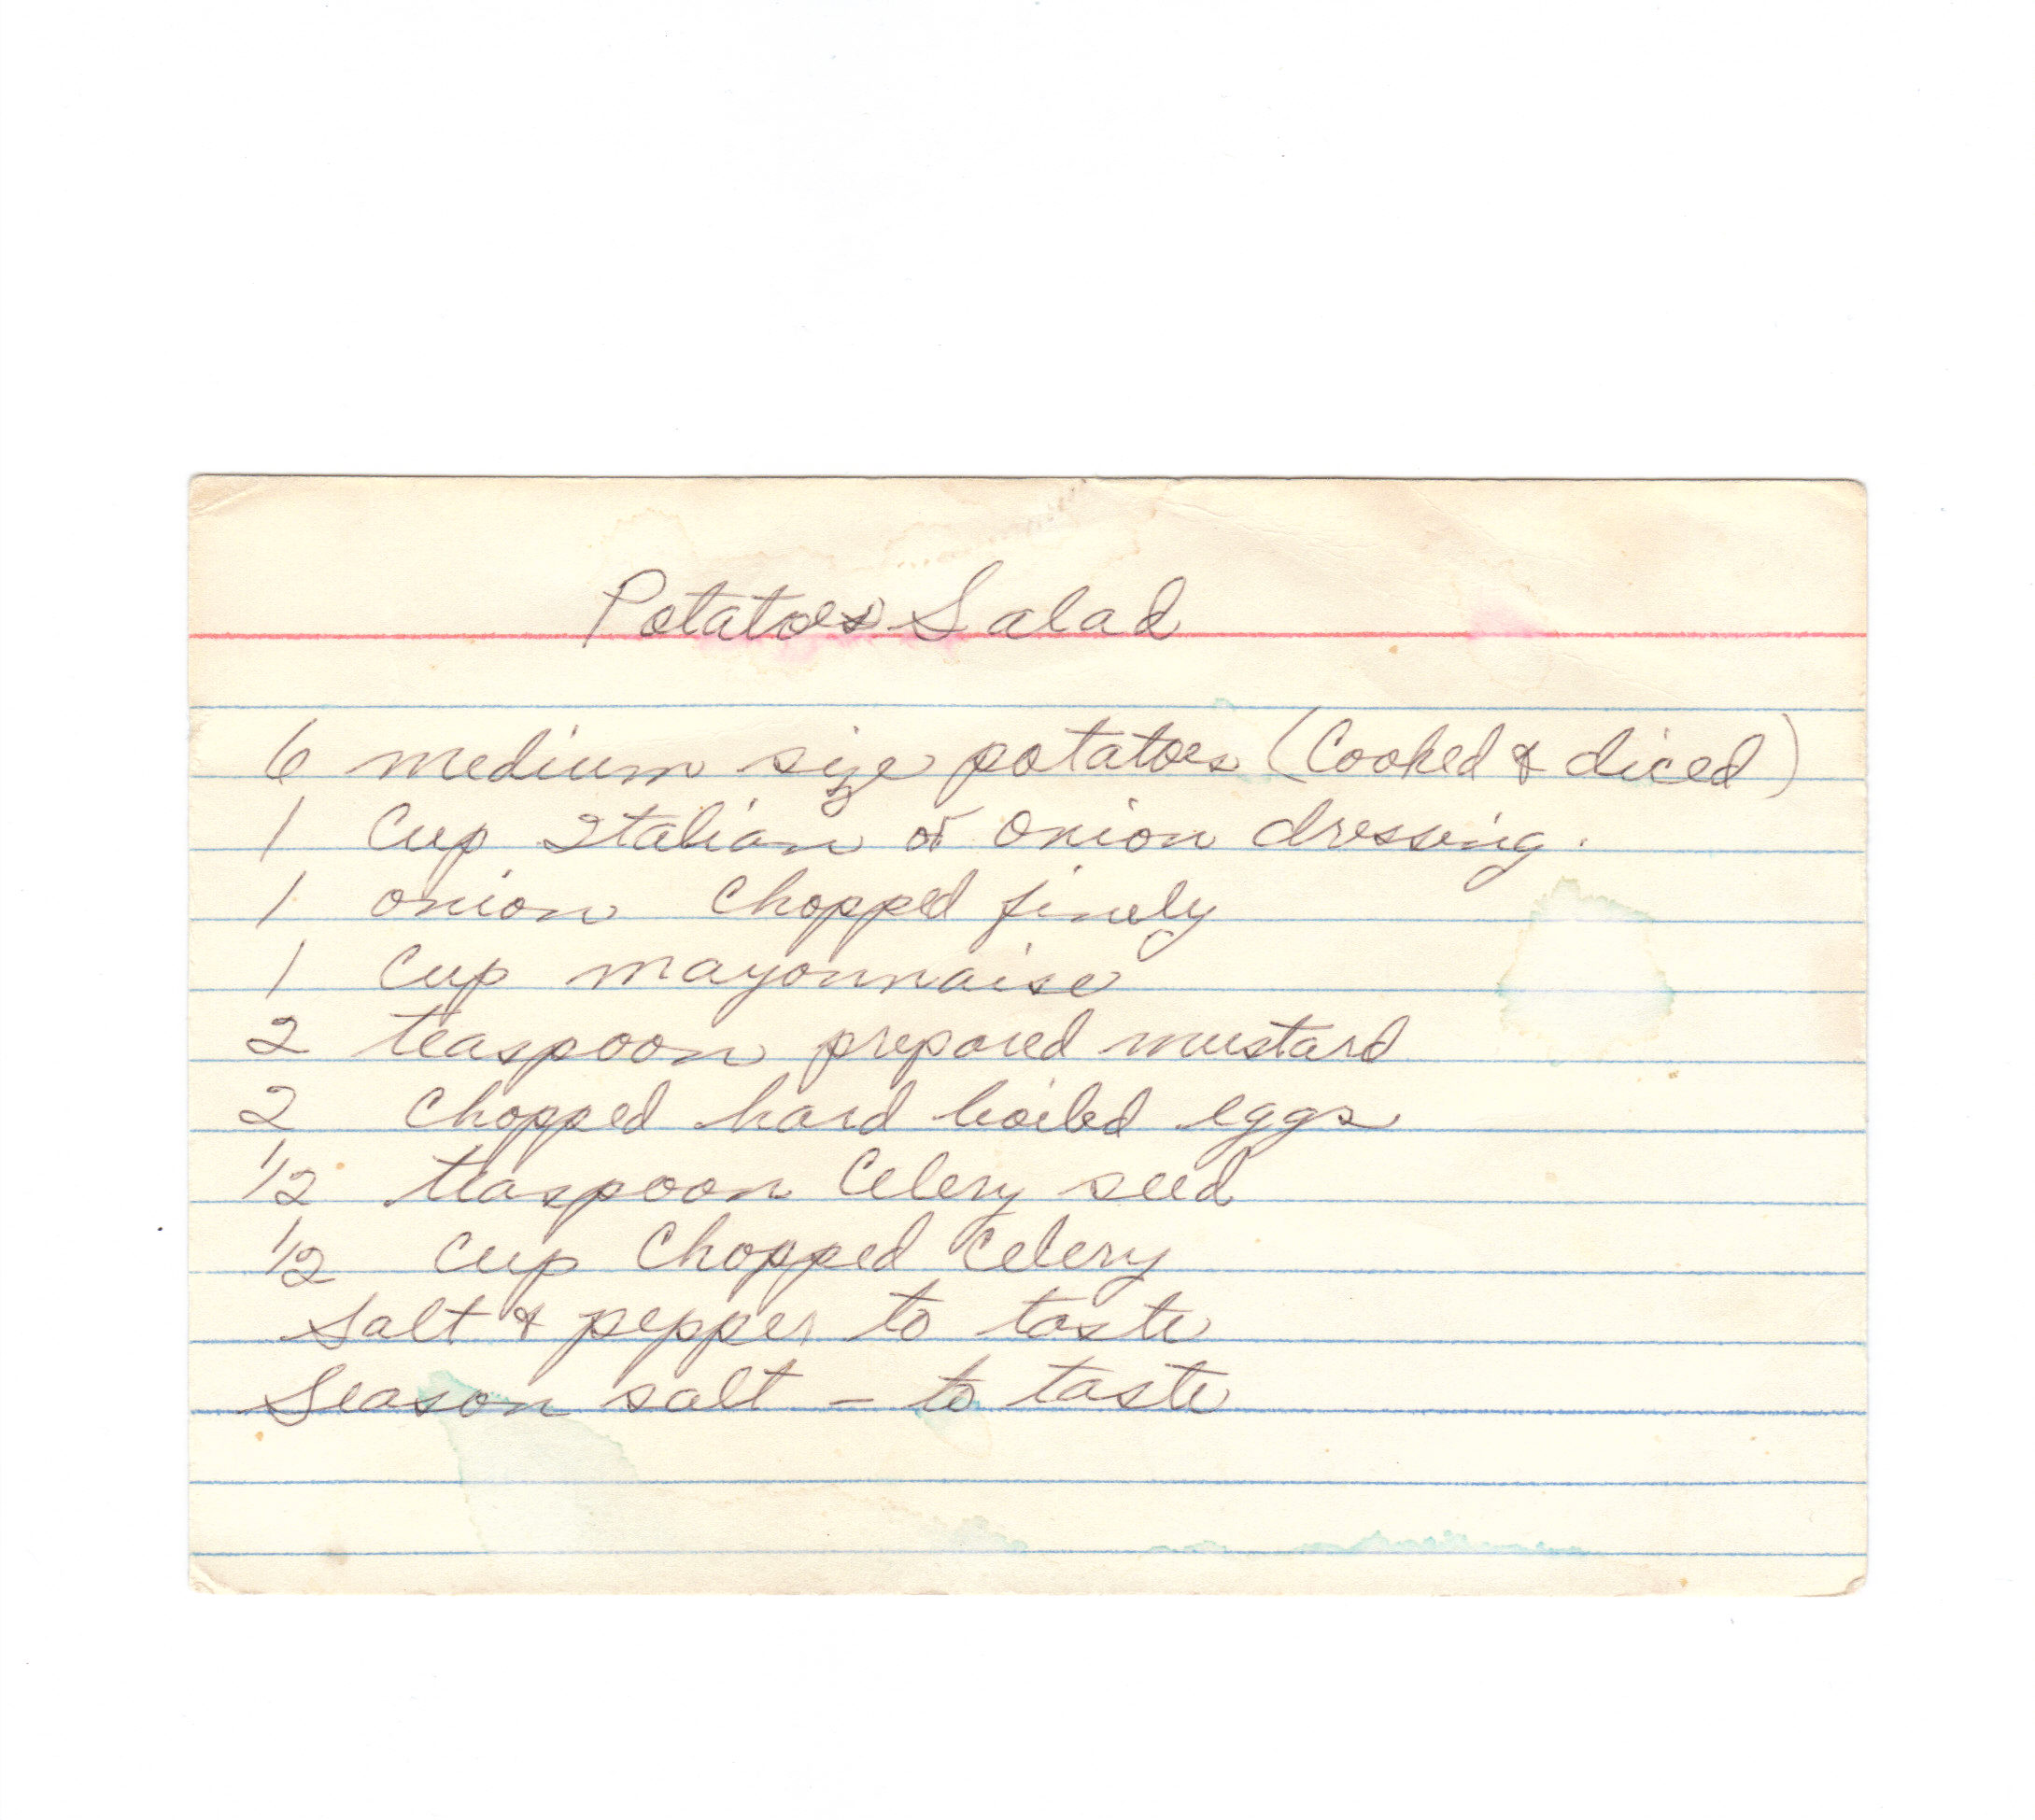 Potatoes Salad
6 medium size potatoes (Cooked & diced)
1 Cup Italian or Onion dressing.
1 onion Chopped finely
1 Cup mayonnaise
2 teaspoon prepared mustard
2 Chopped hard boiled eggs
1/2 teaspoon Celery seed
1/2 Cup Chopped Celery
Salt & pepper to taste
Season salt - to taste